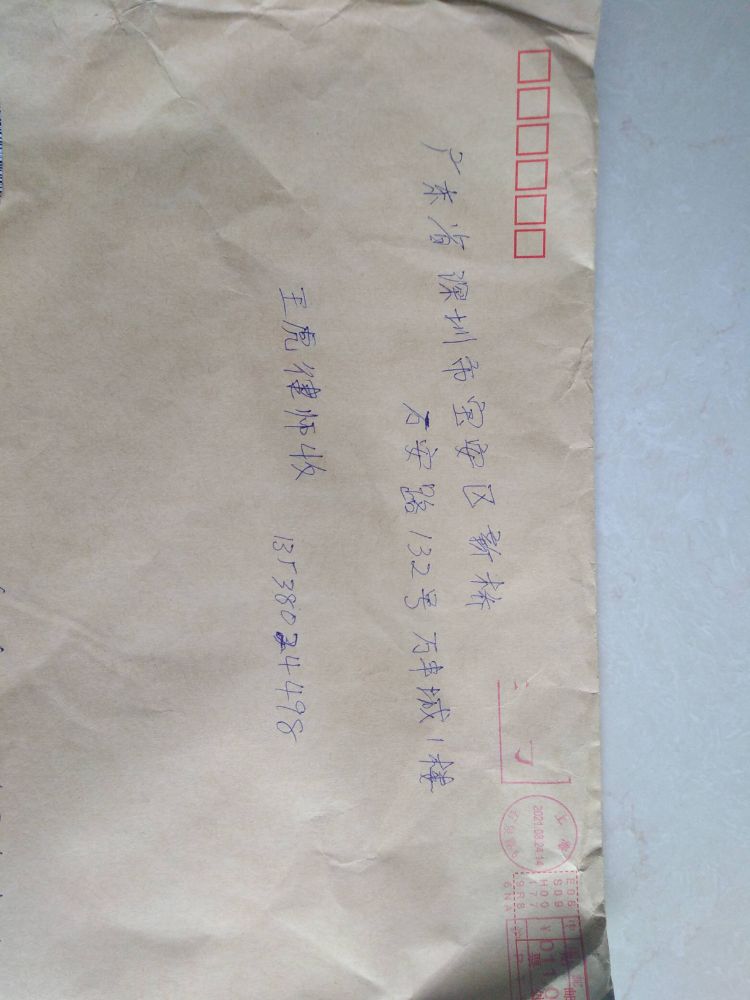 广东省深圳市宝安区新桥
万安路132号万丰城1楼
王虎律师收 13538024498
2021.08.24.14